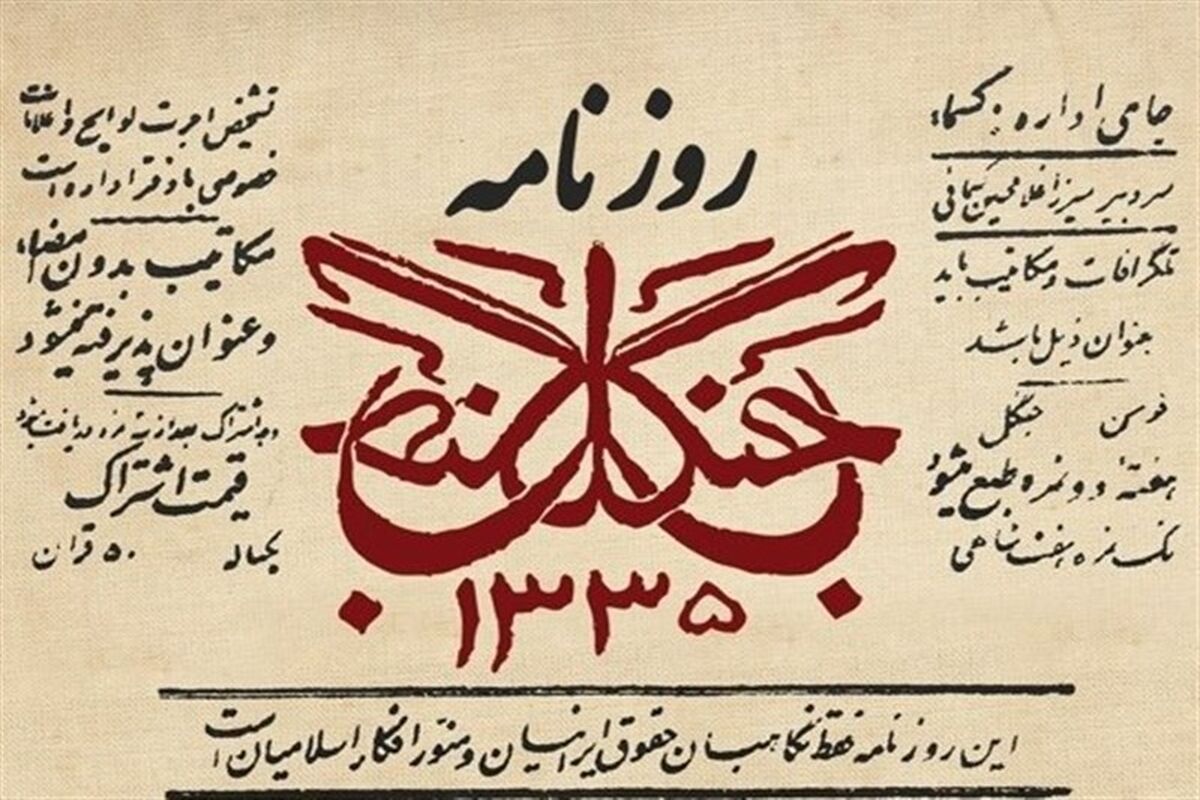 روزنامه
جنگل
۱۳۳۵
جای اداره: کسماء
سردبیر میرزا غلامحسین کسمائی
تلگرافات و مکاتیب باید
بعنوان ذیل باشد
فومن جنگل
هفتهٔ دو نمره طبع میشود
تک نمره هفت شاهی
تشخیص اجرت لوایح و اعلانات
خصوصی با دفتر اداره است
مکاتیب بدون امضاء
و عنوان پذیرفته نمیشود
وجه اشتراک بعد از نمره دریافت میشود
قیمت اشتراک
یکساله ۵۰ قران
این روزنامه فقط نگاهبان حقوق ایرانیان و منوّر افکار اسلامیان است